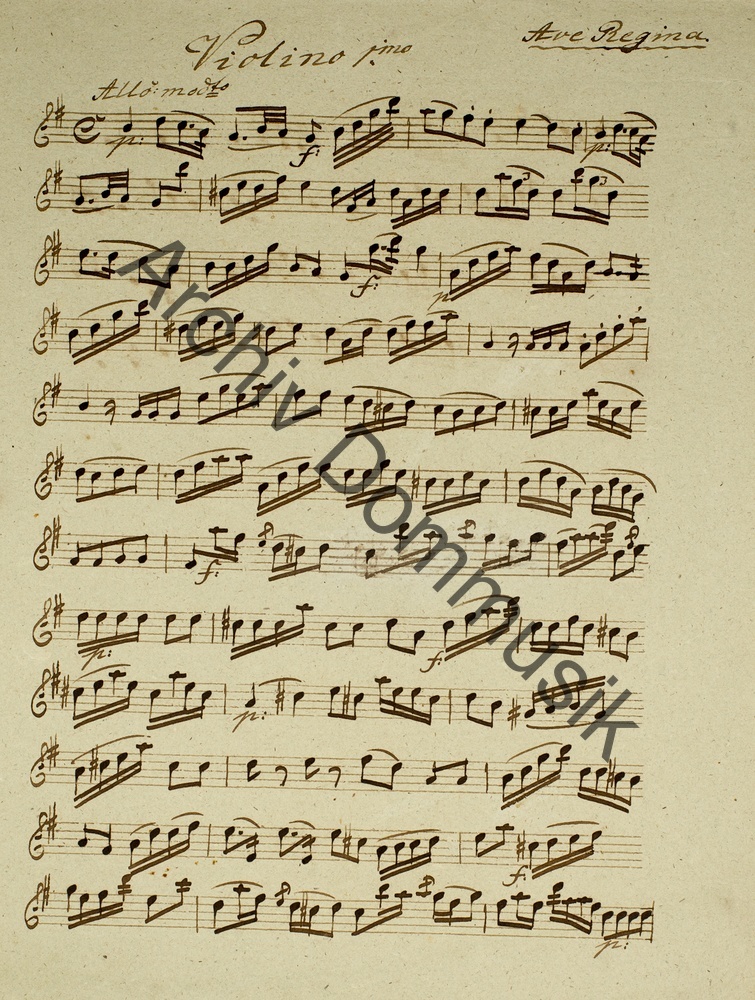 Violino 1.mo
Ave Regina.
Allo: modto
p: f: p:
f: p
f:
p: f:
p:
f:
p:
Archiv Dommusik